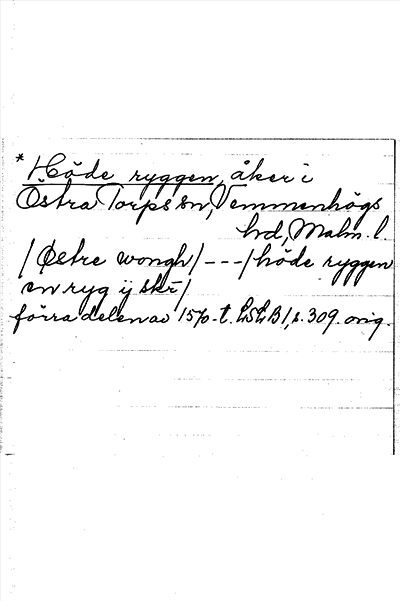 * Höde ryggen, åker i
Östra Torps sn, Vemmenhögs
hd, Malm. l.
/Østre wongh/---/höde ryggen
en ryg ij skr̄/
förra delen av 1570-t. LSLB1, s. 309. orig.